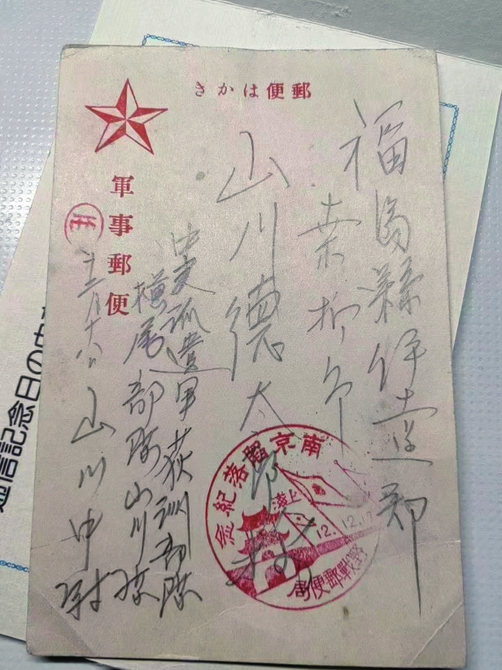 郵便はかき
福島縣伊達郡
山川德太郎
軍事郵便
中支派遣軍荻洲部隊
横尾部隊山川隊
山川中尉
南京陥落紀念
上海
12.12.17
野戰郵便局
信記念日の中